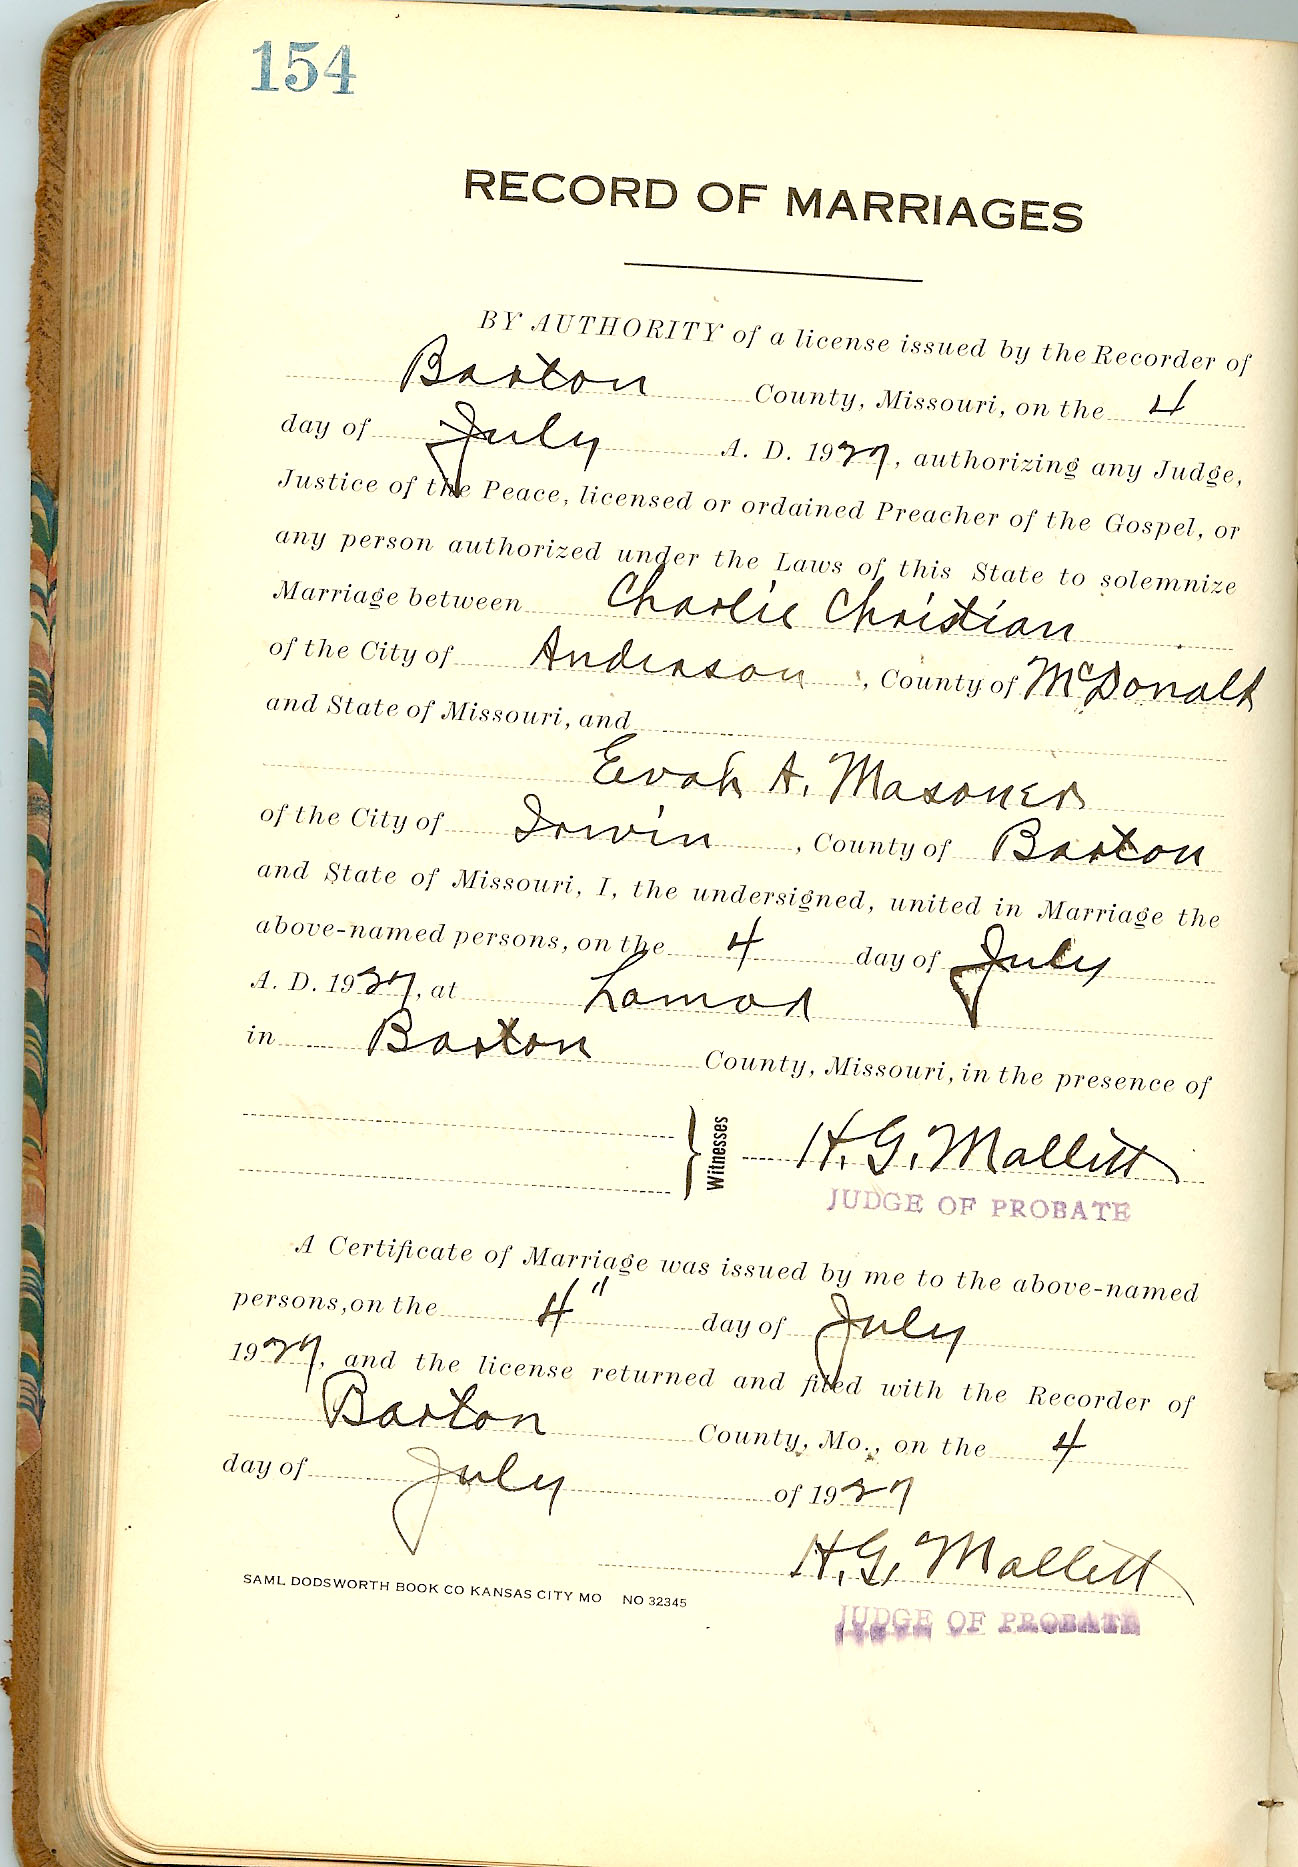 154
RECORD OF MARRIAGES
BY AUTHORITY of a license issued by the Recorder of
Barton County, Missouri, on the 4
day of July A. D. 1927, authorizing any Judge,
Justice of the Peace, licensed or ordained Preacher of the Gospel, or
any person authorized under the Laws of this State to solemnize
Marriage between Charlie Christian
of the City of Anderson, County of McDonald
and State of Missouri, and
Evah A. Masoner
of the City of Irwin, County of Barton
and State of Missouri, I, the undersigned, united in Marriage the
above-named persons, on the 4 day of July
A. D. 1927, at Lamar
in Barton County, Missouri, in the presence of
Witnesses H. G. Mallett
JUDGE OF PROBATE
A Certificate of Marriage was issued by me to the above-named
persons, on the 4" day of July
1927, and the license returned and filed with the Recorder of
Barton County, Mo., on the 4
day of July of 1927
H. G. Mallett
JUDGE OF PROBATE
SAML DODSWORTH BOOK CO KANSAS CITY MO NO 32345